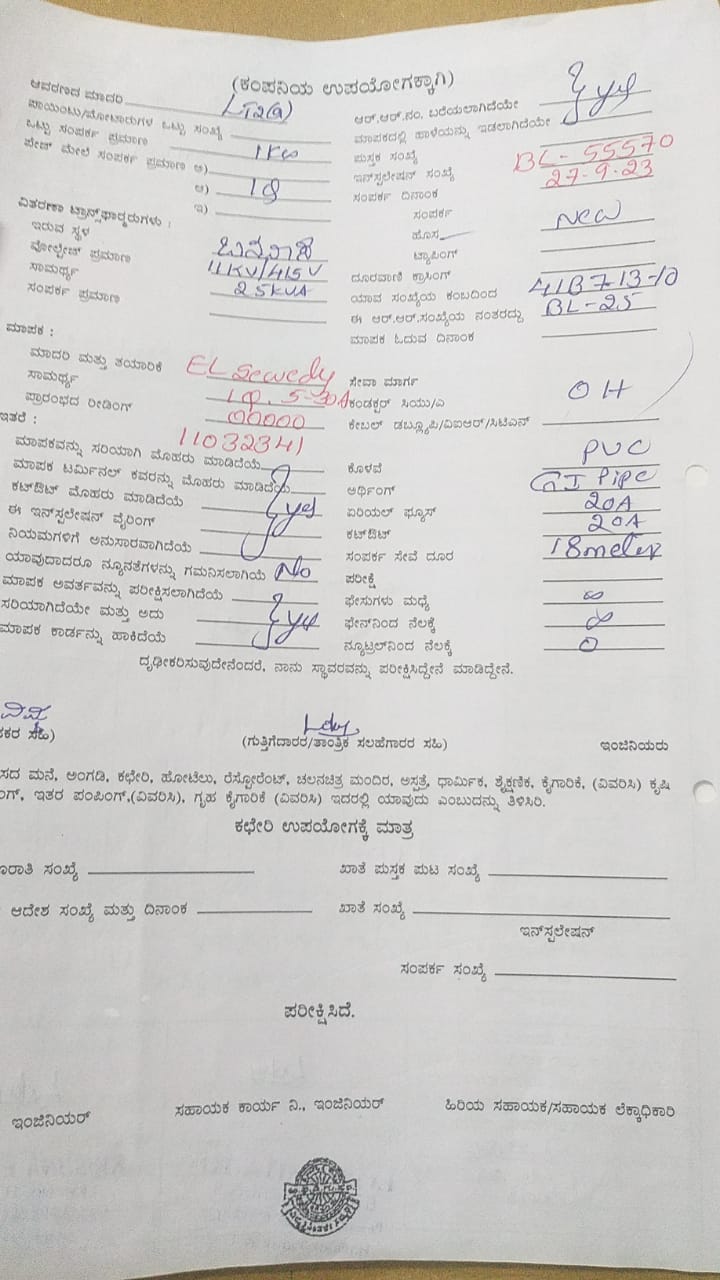 (ಕಂಪನಿಯ ಉಪಯೋಗಕ್ಕಾಗಿ)
ಆವರಣದ ಮಾದರಿ LT2(a)
ಪಾಯಿಂಟು/ಮೋಟಾರುಗಳ ಒಟ್ಟು ಸಂಖ್ಯೆ
ಒಟ್ಟು ಸಂಪರ್ಕ ಪ್ರಮಾಣ 1Kw
ಪೇಟ್ ಮೇಲೆ ಸಂಪರ್ಕ ಪ್ರಮಾಣ ಅ)
ಆ) 1Φ
ಇ)
ವಿತರಣಾ ಟ್ರಾನ್ಸ್‌ಫಾರ್ಮರುಗಳು :
ಇರುವ ಸ್ಥಳ
ವೋಲ್ಟೇಜ್ ಪ್ರಮಾಣ 11KV/415V
ಸಾಮರ್ಥ್ಯ 25KVA
ಸಂಪರ್ಕ ಪ್ರಮಾಣ
ಆರ್.ಆರ್.ನಂ. ಬರೆಯಲಾಗಿದೆಯೇ } yes
ಮಾಪಕದಲ್ಲಿ ಹಾಳೆಯನ್ನು ಇಡಲಾಗಿದೆಯೇ
ಪುಸ್ತಕ ಸಂಖ್ಯೆ
ಇನ್‌ಸ್ಟಲೇಷನ್ ಸಂಖ್ಯೆ BL-55570
ಸಂಪರ್ಕ ದಿನಾಂಕ 27-9-23
ಸಂಪರ್ಕ
ಹೊಸ New
ಟ್ಯಾಪಿಂಗ್
ದೂರವಾಣಿ ಕ್ರಾಸಿಂಗ್
ಯಾವ ಸಂಖ್ಯೆಯ ಕಂಬದಿಂದ
ಈ ಆರ್.ಆರ್.ಸಂಖ್ಯೆಯ ನಂತರದ್ದು BL-25
ಮಾಪಕ ಓದುವ ದಿನಾಂಕ
ಮಾಪಕ :
ಮಾದರಿ ಮತ್ತು ತಯಾರಿಕೆ EL Sewedy
ಸಾಮರ್ಥ್ಯ 1Φ, 5-30A
ಪ್ರಾರಂಭದ ರೀಡಿಂಗ್ 00000
ಇತರೆ : 11032341
ಮಾಪಕವನ್ನು ಸರಿಯಾಗಿ ಮೊಹರು ಮಾಡಿದೆಯೆ
ಮಾಪಕ ಟರ್ಮಿನಲ್ ಕವರನ್ನು ಮೊಹರು ಮಾಡಿದೆಯೆ
ಕಟ್‌ಔಟ್ ಮೊಹರು ಮಾಡಿದೆಯೆ } yes
ಈ ಇನ್‌ಸ್ಟಲೇಷನ್ ವೈರಿಂಗ್
ನಿಯಮಗಳಿಗೆ ಅನುಸಾರವಾಗಿದೆಯೆ
ಯಾವುದಾದರೂ ನ್ಯೂನತೆಗಳನ್ನು ಗಮನಿಸಲಾಗಿಯೆ No
ಮಾಪಕ ಅವರ್ತವನ್ನು ಪರೀಕ್ಷಿಸಲಾಗಿದೆಯೆ
ಸರಿಯಾಗಿದೆಯೇ ಮತ್ತು ಅದು } yes
ಮಾಪಕ ಕಾರ್ಡನ್ನು ಹಾಕಿದೆಯೆ
ಸೇವಾ ಮಾರ್ಗ
ಕಂಡಕ್ಟರ್ ಸಿಯು/ಎ OH
ಕೇಬಲ್ ಡಬ್ಲ್ಯೂಪಿ/ವಿಐಆರ್/ಸಿಟಿಎಸ್
ಕೊಳವೆ PVC
ಅರ್ಥಿಂಗ್ GI Pipe
ಏರಿಯಲ್ ಫ್ಯೂಸ್ 20A
ಕಟ್‌ಔಟ್ 20A
ಸಂಪರ್ಕ ಸೇವೆ ದೂರ 18meter
ಪರೀಕ್ಷೆ
ಫೇಸುಗಳು ಮಧ್ಯೆ ∞
ಫೇಸ್‌ನಿಂದ ನೆಲಕ್ಕೆ ∞
ನ್ಯೂಟ್ರಲ್‌ನಿಂದ ನೆಲಕ್ಕೆ 0
ದೃಢೀಕರಿಸುವುದೇನೆಂದರೆ, ನಾನು ಸ್ಥಾವರವನ್ನು ಪರೀಕ್ಷಿಸಿದ್ದೇನೆ ಮಾಡಿದ್ದೇನೆ.
ಕರ ಸಹಿ) (ಗುತ್ತಿಗೆದಾರರ/ತಾಂತ್ರಿಕ ಸಲಹೆಗಾರರ ಸಹಿ) ಇಂಜಿನಿಯರು
ಸದ ಮನೆ, ಅಂಗಡಿ, ಕಛೇರಿ, ಹೋಟೆಲು, ರೆಸ್ಟೋರೆಂಟ್, ಚಲನಚಿತ್ರ ಮಂದಿರ, ಅಸ್ಪತ್ರೆ, ಧಾರ್ಮಿಕ, ಶೈಕ್ಷಣಿಕ, ಕೈಗಾರಿಕೆ, (ವಿವರಿಸಿ) ಕೃಷಿ
ಂಗ್, ಇತರ ಪಂಪಿಂಗ್,(ವಿವರಿಸಿ), ಗೃಹ ಕೈಗಾರಿಕೆ (ವಿವರಿಸಿ) ಇದರಲ್ಲಿ ಯಾವುದು ಎಂಬುದನ್ನು ತಿಳಿಸಿರಿ.
ಕಛೇರಿ ಉಪಯೋಗಕ್ಕೆ ಮಾತ್ರ
ರಾತಿ ಸಂಖ್ಯೆ ಖಾತೆ ಪುಸ್ತಕ ಪುಟ ಸಂಖ್ಯೆ
ಆದೇಶ ಸಂಖ್ಯೆ ಮತ್ತು ದಿನಾಂಕ ಖಾತೆ ಸಂಖ್ಯೆ
ಇನ್‌ಸ್ಟಲೇಷನ್
ಸಂಪರ್ಕ ಸಂಖ್ಯೆ
ಪರೀಕ್ಷಿಸಿದೆ.
ಇಂಜಿನಿಯರ್ ಸಹಾಯಕ ಕಾರ್ಯ ನಿ., ಇಂಜಿನಿಯರ್ ಹಿರಿಯ ಸಹಾಯಕ/ಸಹಾಯಕ ಲೆಕ್ಕಾಧಿಕಾರಿ